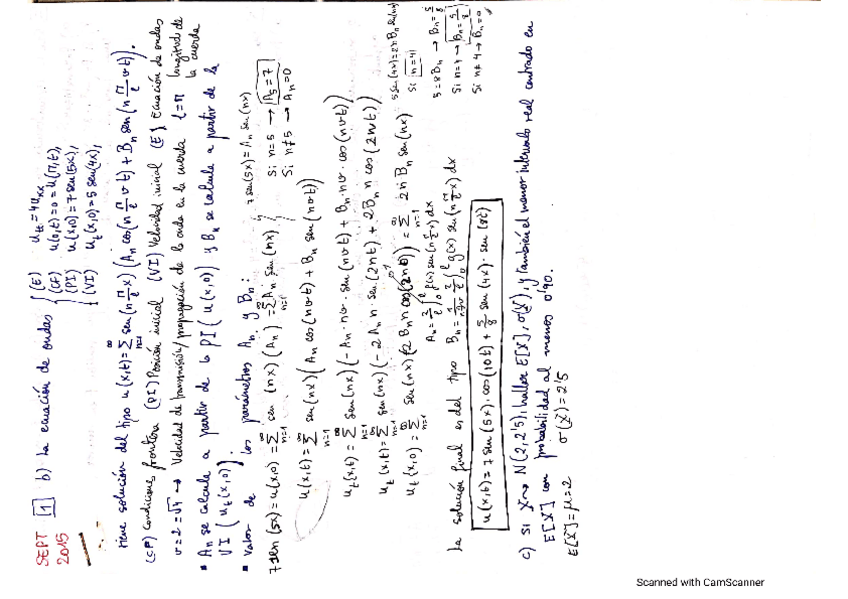 SEPT 2015
[1] b) La ecuación de ondas { (E) u_tt = 4u_xx
(CF) u(0,t)=0=u(π,t),
(PI) u(x,0)=7 sen(5x),
(VI) u_t(x,0)=5 sen(4x),
tiene solución del tipo u(x,t)=∑_{n=1}^∞ sen(n π/ℓ x)(A_n cos(n π/ℓ vt) + B_n sen(n π/ℓ vt)).
(CF) Condiciones frontera (PI) Posición inicial (VI) Velocidad inicial (E) Ecuación de ondas
v=2=√4 → Velocidad de transmisión/propagación de la onda en la cuerda ℓ=π longitud de la cuerda
• An se calcula a partir de la PI (u(x,0)) y Bn se calcula a partir de la
VI (u_t(x,0))
• Valor de los parámetros An y Bn:
7 sen(5x)=u(x,0)=∑_{n=1}^∞ sen(nx)(A_n)=∑_{n=1}^∞ A_n sen(nx) { 7 sen(5x)=A_n sen(nx)
Si n=5 → A_5=7
Si n≠5 → A_n=0
u(x,t)=∑_{n=1}^∞ sen(nx)(A_n cos(nvt) + B_n sen(nvt))
u_t(x,t)=∑_{n=1}^∞ sen(nx)(-A_n·nv·sen(nvt) + B_n·nv·cos(nvt))
u_t(x,t)=∑_{n=1}^∞ sen(nx)(-2A_n n sen(2nt) + 2B_n n cos(2nt))
u_t(x,0)=∑_{n=1}^∞ sen(nx)(2B_n n cos(2n0))=∑_{n=1}^∞ 2nB_n sen(nx)
5 sen(4x)=2nB_n sen(nx)
Si n=4
5=8B_n → B_n=5/8
Si n=4 → B_n=5/8
Si n≠4 → B_n=0
A_n=2/ℓ ∫_0^ℓ f(x) sen(n π/ℓ x) dx
La solución final es del tipo B_n= 2/ℓ ∫_0^ℓ g(x) sen(n π/ℓ x) dx
u(x,t)=7 sen(5x)·cos(10t) + 5/8 sen(4x)·sen(8t)
c) Si X~N(2,2'5), hallar E[X], σ(X), y también el menor intervalo real centrado en
E[X] con probabilidad al menos 0'90.
E[X]=μ=2 σ(X)=2'5
Scanned with CamScanner